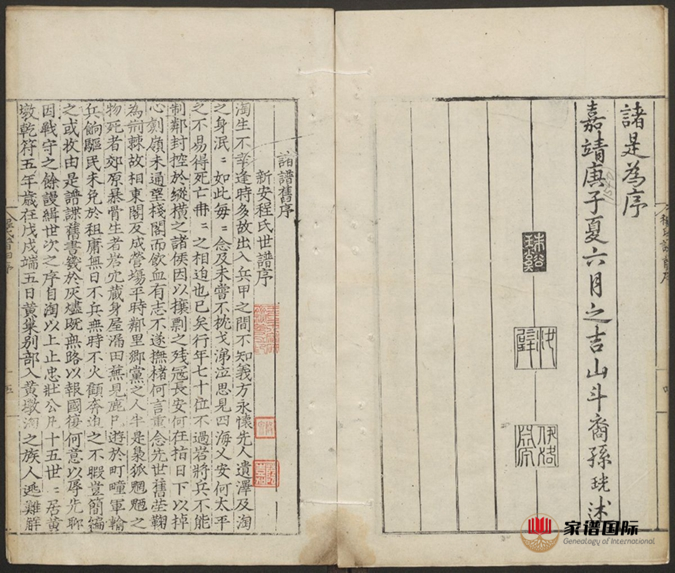 諸是為序
嘉靖庚子夏六月之吉山斗裔孫珖述
珠谿
諸譜舊序
新安程氏世譜序
淘生不辜逢時多故出入兵甲之間不知義方永懷先人遺澤及淘
之身泯〻如此每〻念及未嘗不枕戈涕泣思見四海乂安何太平
之不易得死亡冊〻之相迫也已矣行年七十位不過岩將兵不能
制鄰封控於縱橫之諸侯因以攘剽之殘冠長安何在指日下以掉
心劍嶺未通望棧閣而飲血有志不遂撫楮何言重念先世舊塋鞠
為荊棘故相東閣反成營場平時鄰里鄉黨之人半是梟狐魍魎之
物死者郊原暴骨生者岩穴藏身屋漏田蕪見鹿豕遊於町畽軍輸
兵餉驅民未免於租庸無日不兵無時不火顛奔迫之不暇豈簡編
之或收由是譜諜舊書燹於灰燼既無路以報國復何意以辱先聊
因戰守之餘謾緝世次之序自淘以上止忠壯公凡十五世〻居黃
墩乾符五年歲在戊戌端五日黃巢別部入黃墩淘之族人逃難解
家谱国际
Genealogy of International